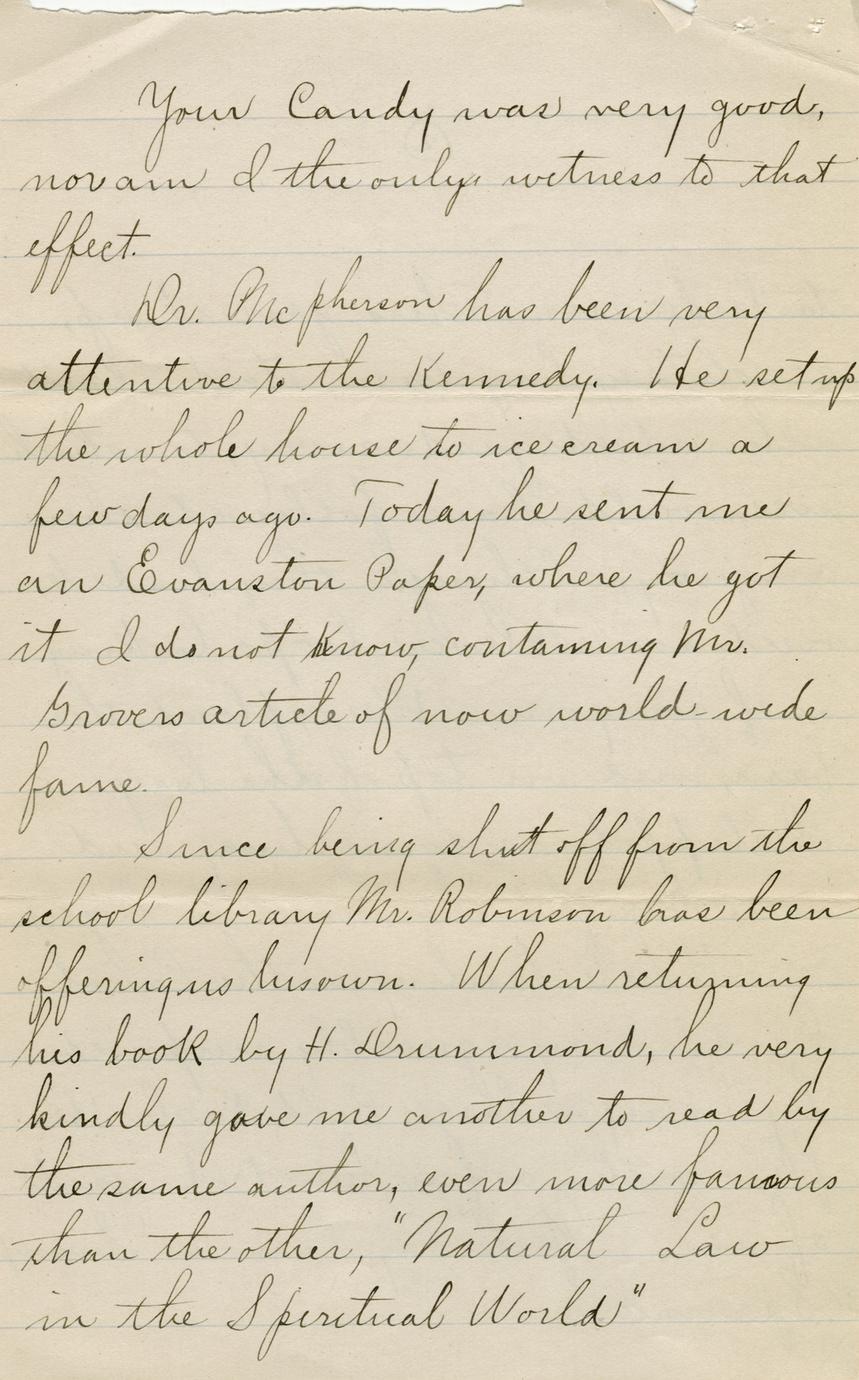 Your Candy was very good,
nor am I the only witness to that
effect.
Dr. McPherson has been very
attentive to the Kennedy. He set up
the whole house to ice cream a
few days ago. Today he sent me
an Evanston Paper, where he got
it I do not know, containing Mr.
Grovers article of now world-wide
fame.
Since being shut off from the
school library Mr. Robinson has been
offering us his own. When returning
his book by H. Drummond, he very
kindly gave me another to read by
the same author, even more famous
than the other, "Natural Law
in the Spiritual World"